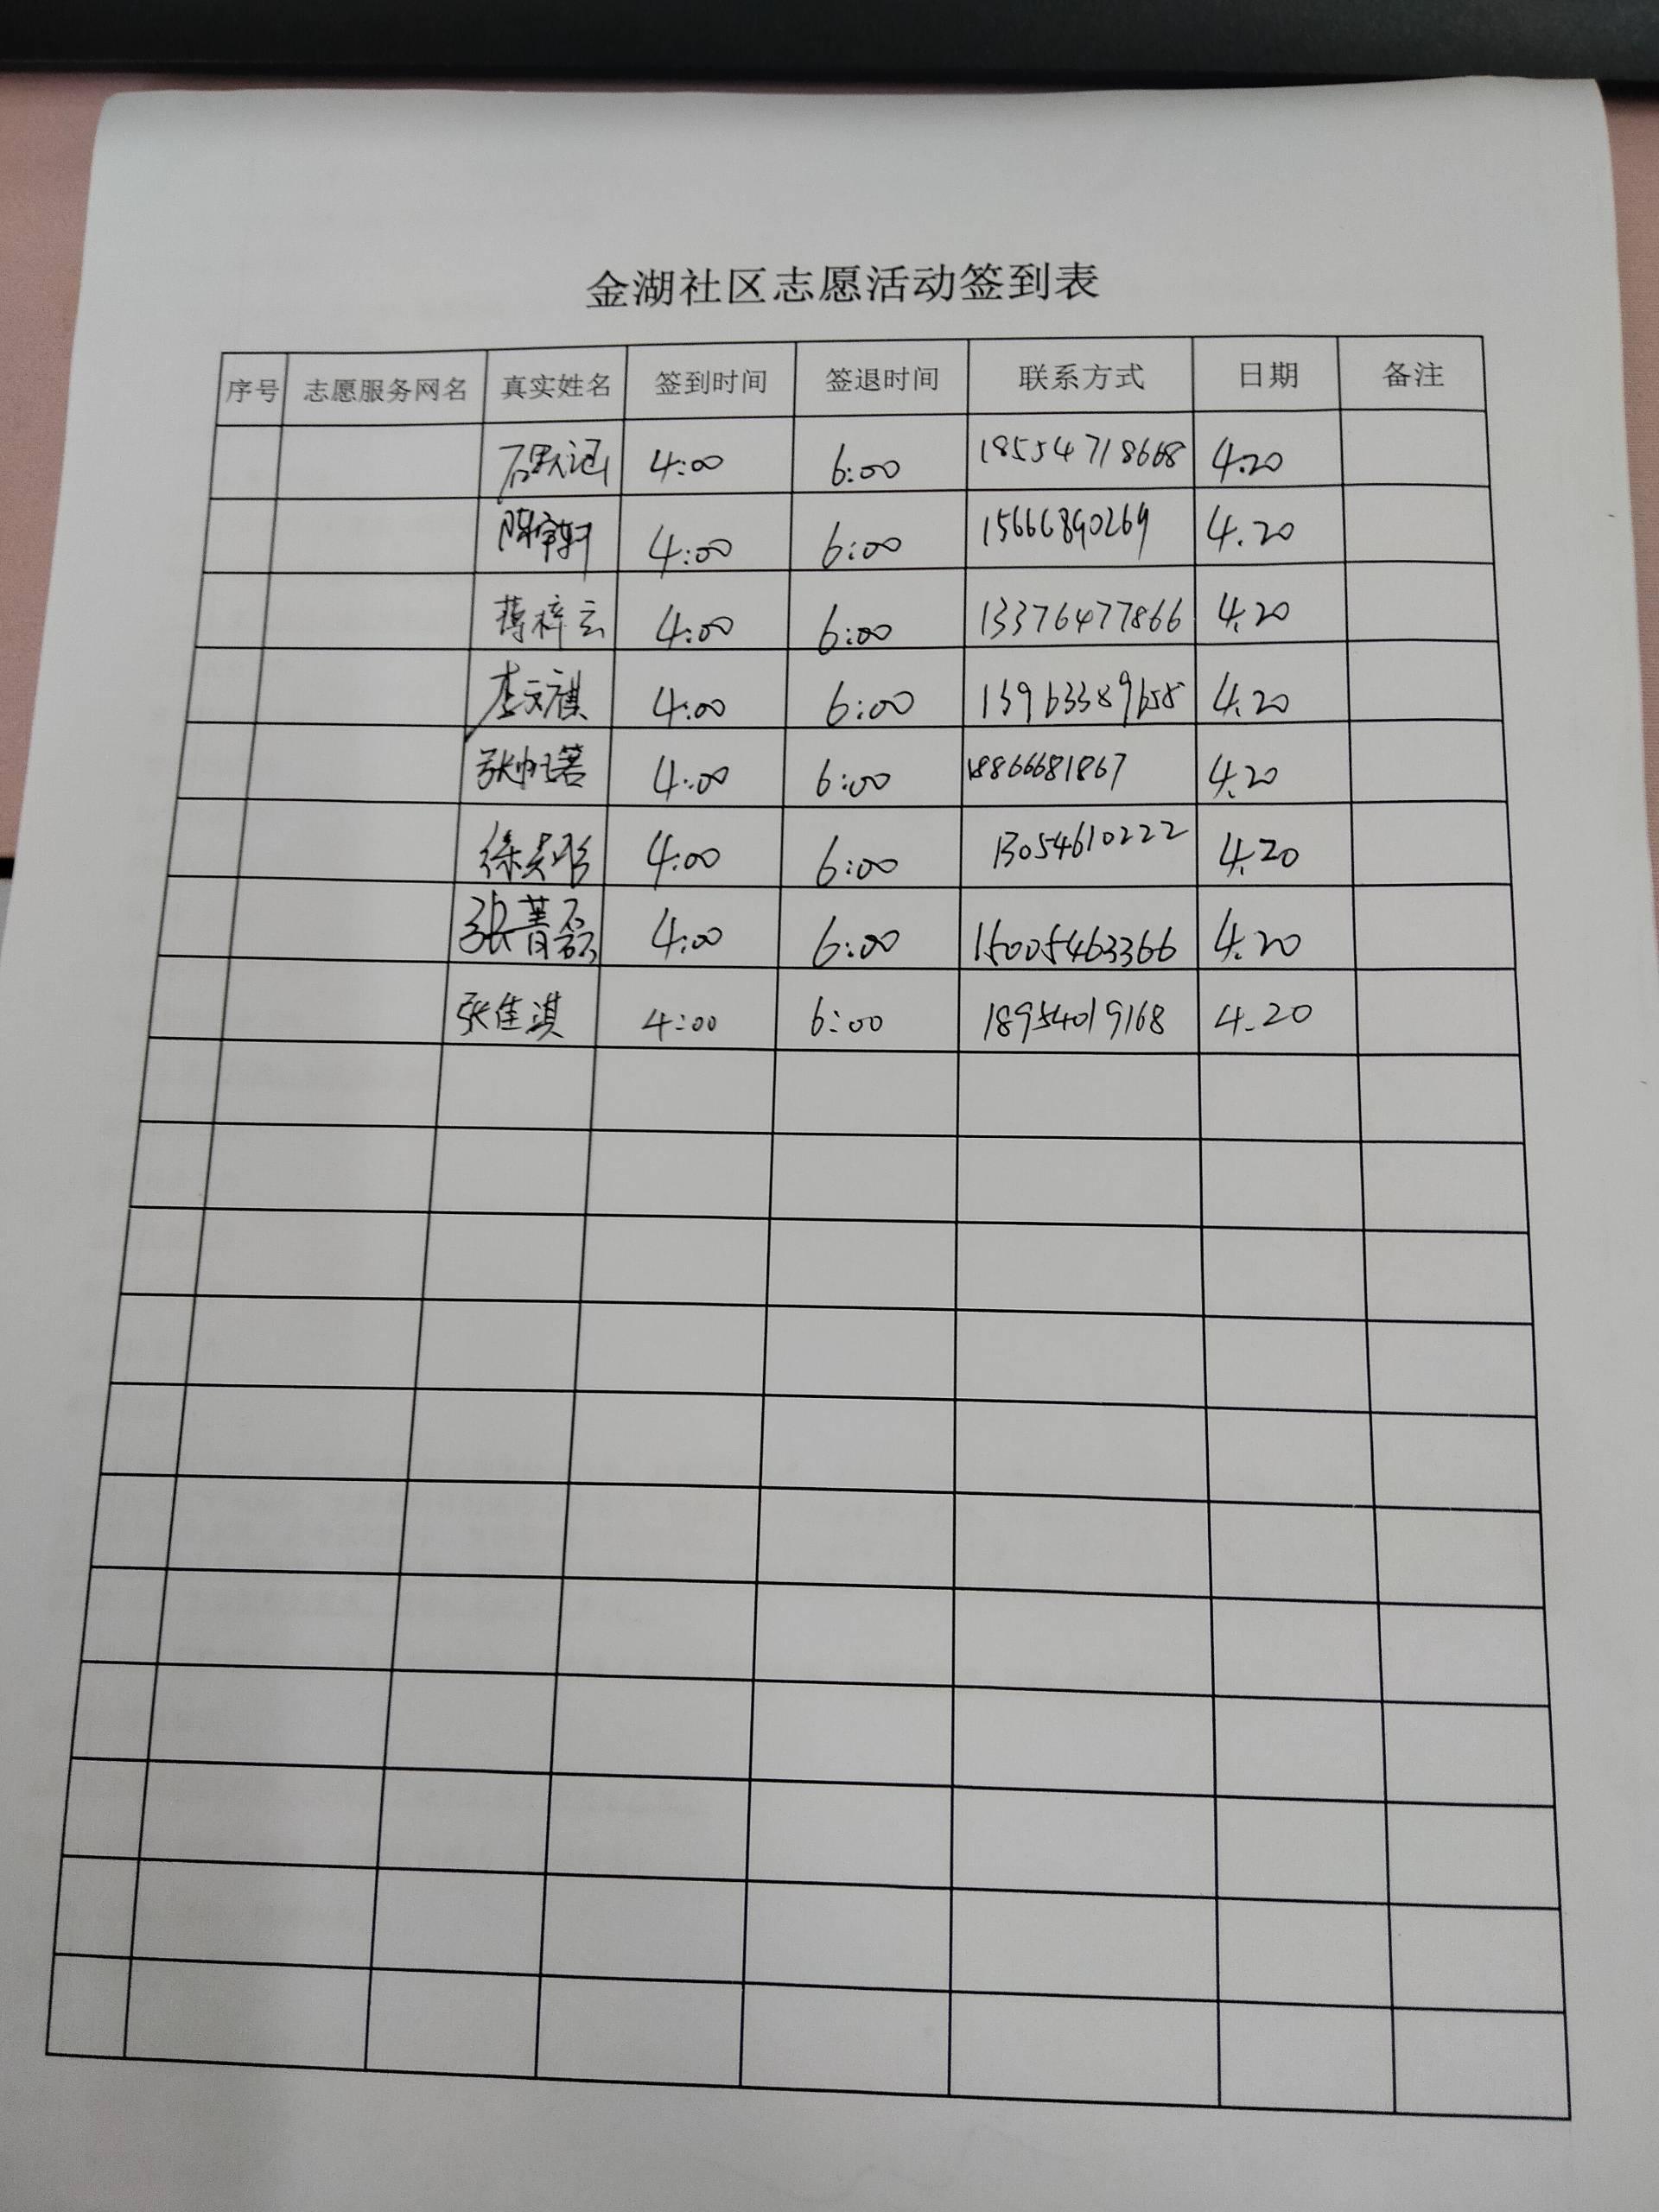 金湖社区志愿活动签到表
序号 志愿服务网名 真实姓名 签到时间 签退时间 联系方式 日期 备注
石默涵 4:00 6:00 18554718668 4.20
陈宇轩 4:00 6:00 15666890269 4.20
蒋梓云 4:00 6:00 13376477866 4.20
李文祺 4:00 6:00 13963389658 4.20
4:00 6:00 18866681867 4.20
4:00 6:00 13054610222 4.20
张菁磊 4:00 6:00 15005463366 4.20
张佳淇 4:00 6:00 18954019168 4.20